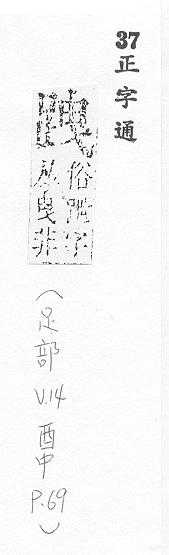 37 正字通
跩
俗跇字
从曳非
(足部 V.14 酉中 P.69)